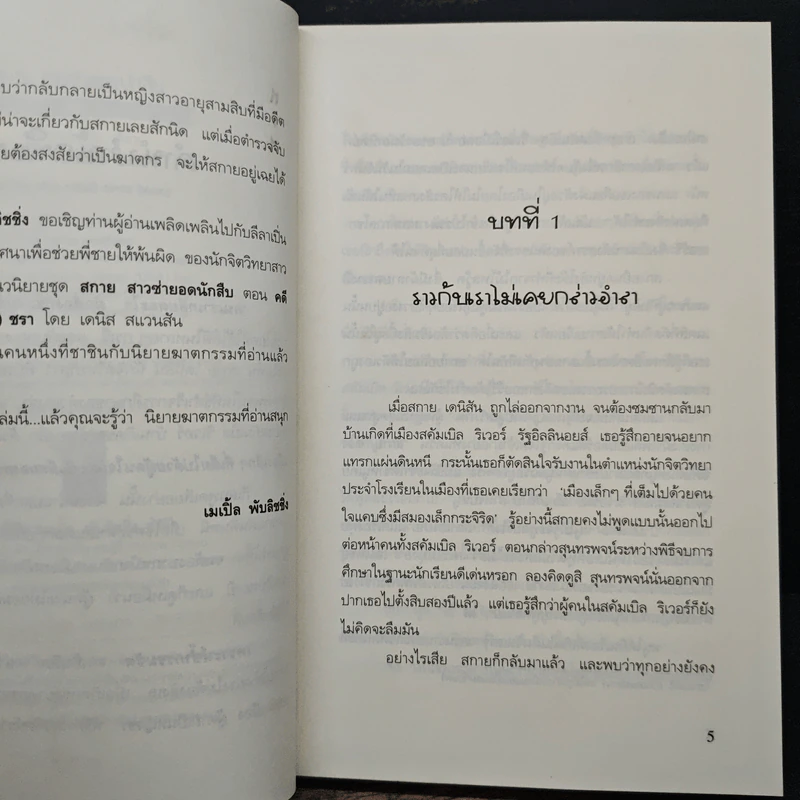 บว่ากลับกลายเป็นหญิงสาวอายุสามสิบที่มีอดีต
น่าจะเกี่ยวกับสกายเลยสักนิด แต่เมื่อตำรวจจับ
ยต้องสงสัยว่าเป็นฆาตกร จะให้สกายอยู่เฉยได้
ลิชชิ่ง ขอเชิญท่านผู้อ่านเพลิดเพลินไปกับลีลาเป็น
ศนาเพื่อช่วยพี่ชายให้พ้นผิด ของนักจิตวิทยาสาว
วนิยายชุด สกาย สาวซ่ายอดนักสืบ ตอน คดี
) ชรา โดย เดนิส สแวนสัน
นคนหนึ่งที่ชาชินกับนิยายฆาตกรรมที่อ่านแล้ว
ล่มนี้...แล้วคุณจะรู้ว่า นิยายฆาตกรรมที่อ่านสนุก
เมเปิ้ล พับลิชชิ่ง
บทที่ 1
ราวกับเราไม่เคยกล่าวอำลา
เมื่อสกาย เดนิสัน ถูกไล่ออกจากงาน จนต้องซมซานกลับมา
บ้านเกิดที่เมืองสคัมเบิล ริเวอร์ รัฐอิลลินอยส์ เธอรู้สึกอายจนอยาก
แทรกแผ่นดินหนี กระนั้นเธอก็ตัดสินใจรับงานในตำแหน่งนักจิตวิทยา
ประจำโรงเรียนในเมืองที่เธอเคยเรียกว่า ‘เมืองเล็กๆ ที่เต็มไปด้วยคน
ใจแคบซึ่งมีสมองเล็กกระจิริด’ รู้อย่างนี้สกายคงไม่พูดแบบนั้นออกไป
ต่อหน้าคนทั้งสคัมเบิล ริเวอร์ ตอนกล่าวสุนทรพจน์ระหว่างพิธีจบการ
ศึกษาในฐานะนักเรียนดีเด่นหรอก ลองคิดดูสิ สุนทรพจน์นั่นออกจาก
ปากเธอไปตั้งสิบสองปีแล้ว แต่เธอรู้สึกว่าผู้คนในสคัมเบิล ริเวอร์ก็ยัง
ไม่คิดจะลืมมัน
อย่างไรเสีย สกายก็กลับมาแล้ว และพบว่าทุกอย่างยังคง
5